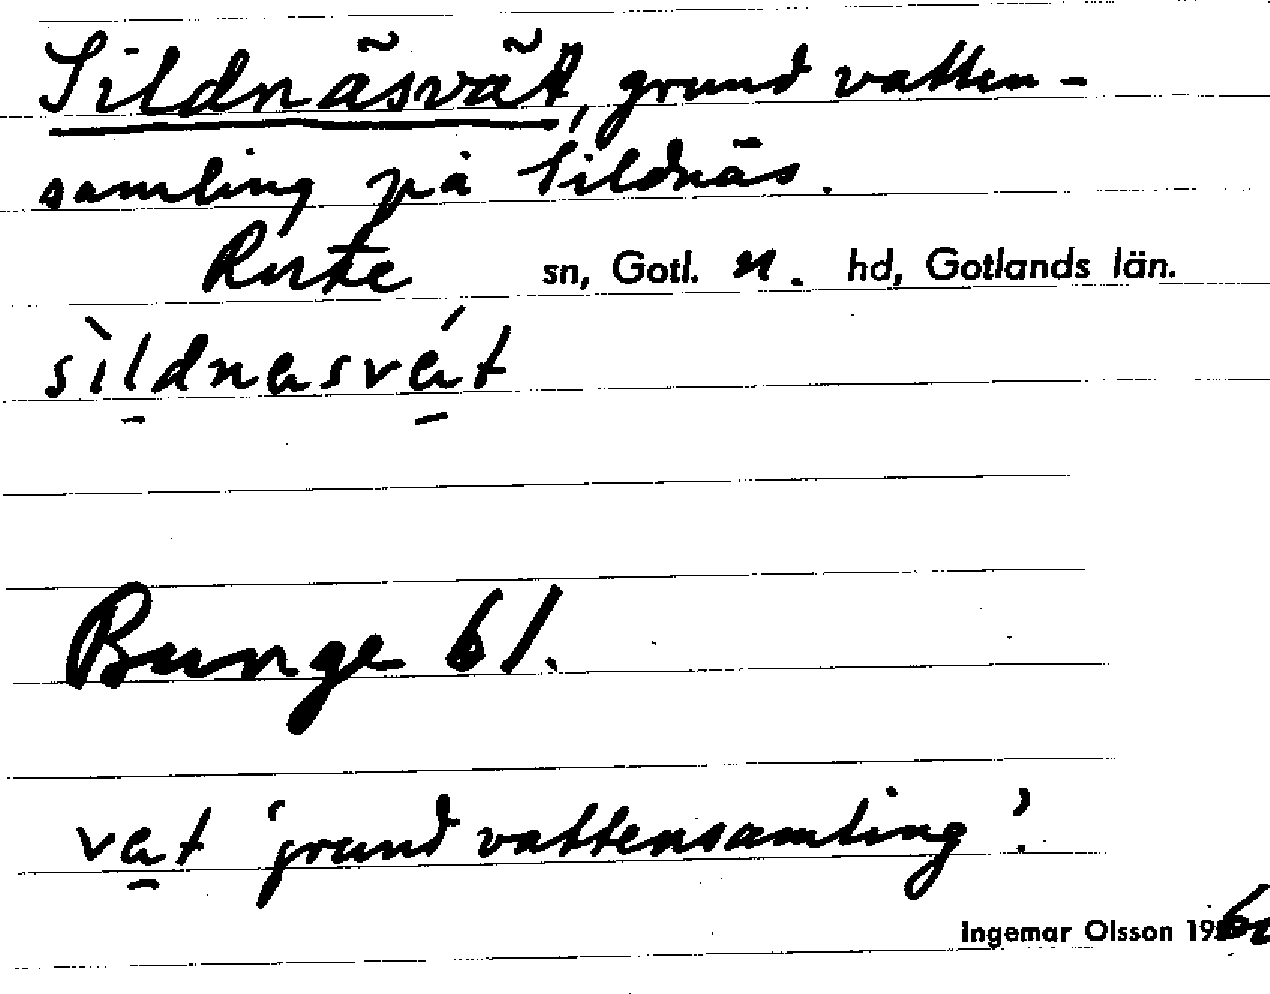 Sildnäsvät, grund vatten-
samling på Sildnäs.
Rute sn, Gotl. n. hd, Gotlands län.
sìldnasvát
Bunge 61.
vat 'grund vattensamling'.
Ingemar Olsson 19